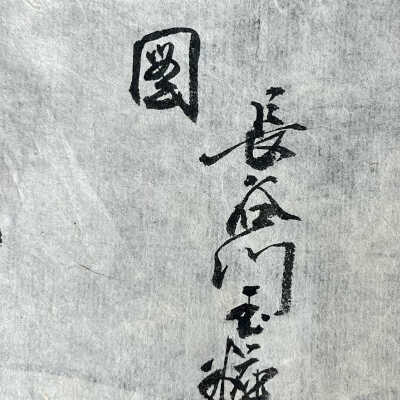 長谷川玉
圖